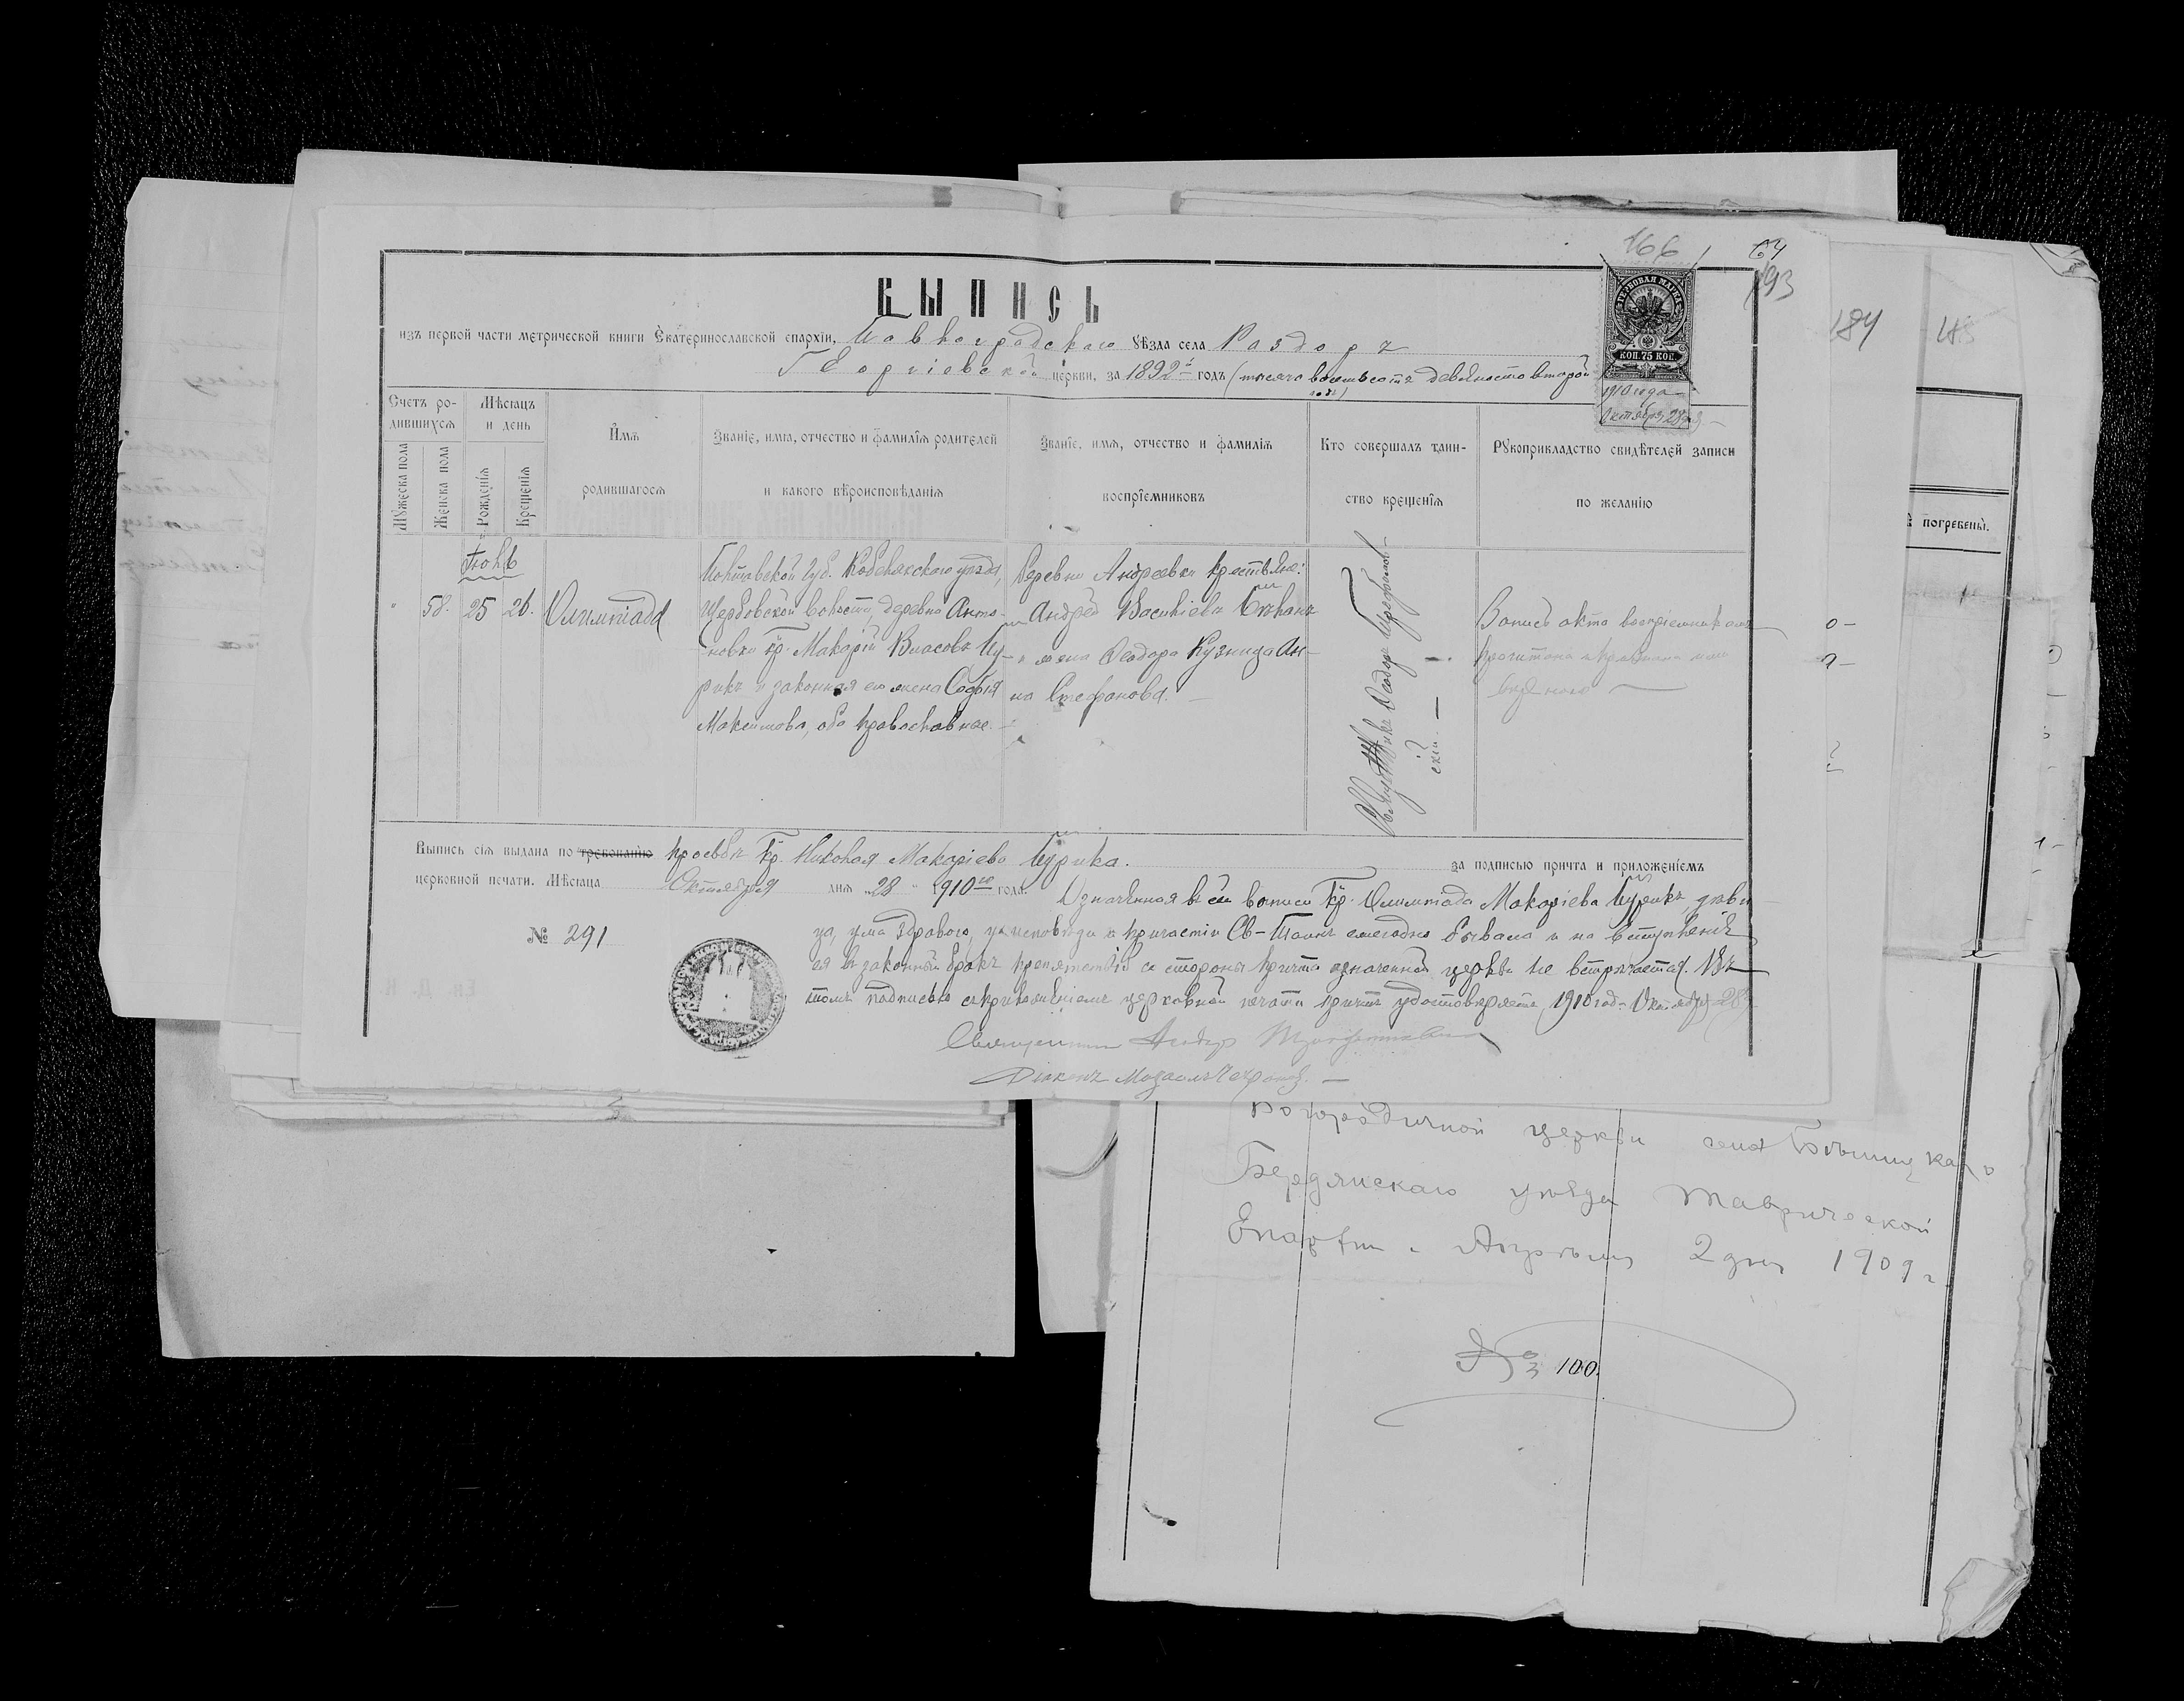 166
64
193
ВЫПИСЬ
изъ первой части метрической книги Екатеринославской епархіи, Павлоградскаго уѣзда села Раздоръ
Георгіевской церкви, за 1892й годъ (тысяча восемьсотъ девяносто второй
годъ)
ГЕРБОВАЯ МАРКА
КОП. 75 КОП.
1910 года
Октября 28 дня
Счетъ ро-
дившихся
Мѣсяцъ
и день
Мужеска пола
Женска пола
Рожденія
Крещенія
Имя
родившагося
Званіе, имя, отчество и фамилія родителей
и какого вѣроисповѣданія
Званіе, имя, отчество и фамилія
воспріемниковъ
Кто совершалъ таин-
ство крещенія
Рукоприкладство свидѣтелей записи
по желанію
Іюнь
" 58. 25 26. Олимпіада
Полтавской губ. Кобелякскаго уѣзда,
волости, деревни Анто-
новки кр. Макарій Власовъ Цу-
рикъ и законная его жена Софія
Максимова, оба православные.
Деревни Андреевки крестьяне:
Андрей Васильевъ
и жена Ѳеодора Кузница Ан-
на Стефанова.
Священникъ Ѳеодоръ
Запись акта воспріемникамъ
прочитана
Выпись сія выдана по требованію просьбѣ кр. Николая Макаріева Цурика. за подписью причта и приложеніемъ
церковной печати. Мѣсяца Октября дня "28" 1910го года.
Означенная въ сей выписи кр. Олимпіада Макаріева Цурикъ, дѣви
ца, ума здраваго, у исповѣди и причастія Св-Таинъ ежегодно бывала и на вступленіе
ея въ законный бракъ препятствій со стороны причта означенной церкви не встрѣчается. Въ
томъ подписью съ приложеніемъ церковной печати причтъ удостовѣряетъ, 1910 года Октября 28 д.
№ 291
Священникъ Ѳеодоръ
Діаконъ
184
погребены.
Богородичной церкви села
Бердянскаго уѣзда Таврической
Епархіи. 2 дня 1909 г
№ 100.